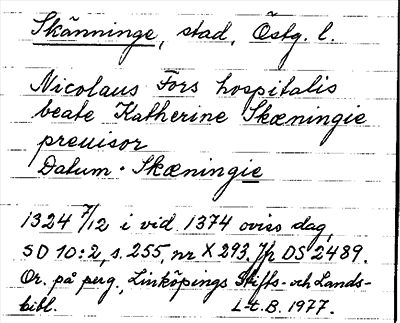 Skänninge, stad, Östg. l.
Nicolaus Fors hospitalis
beate Katherine Skæningie
preuisor
Datum. Skæningie
1324 7/12 i vid. 1374 oviss dag,
SD 10:2, s. 255, nr X 293, jfr DS 2489.
Or. på perg., Linköpings Stifts- och Lands-
bibl. L-t. B. 1977.